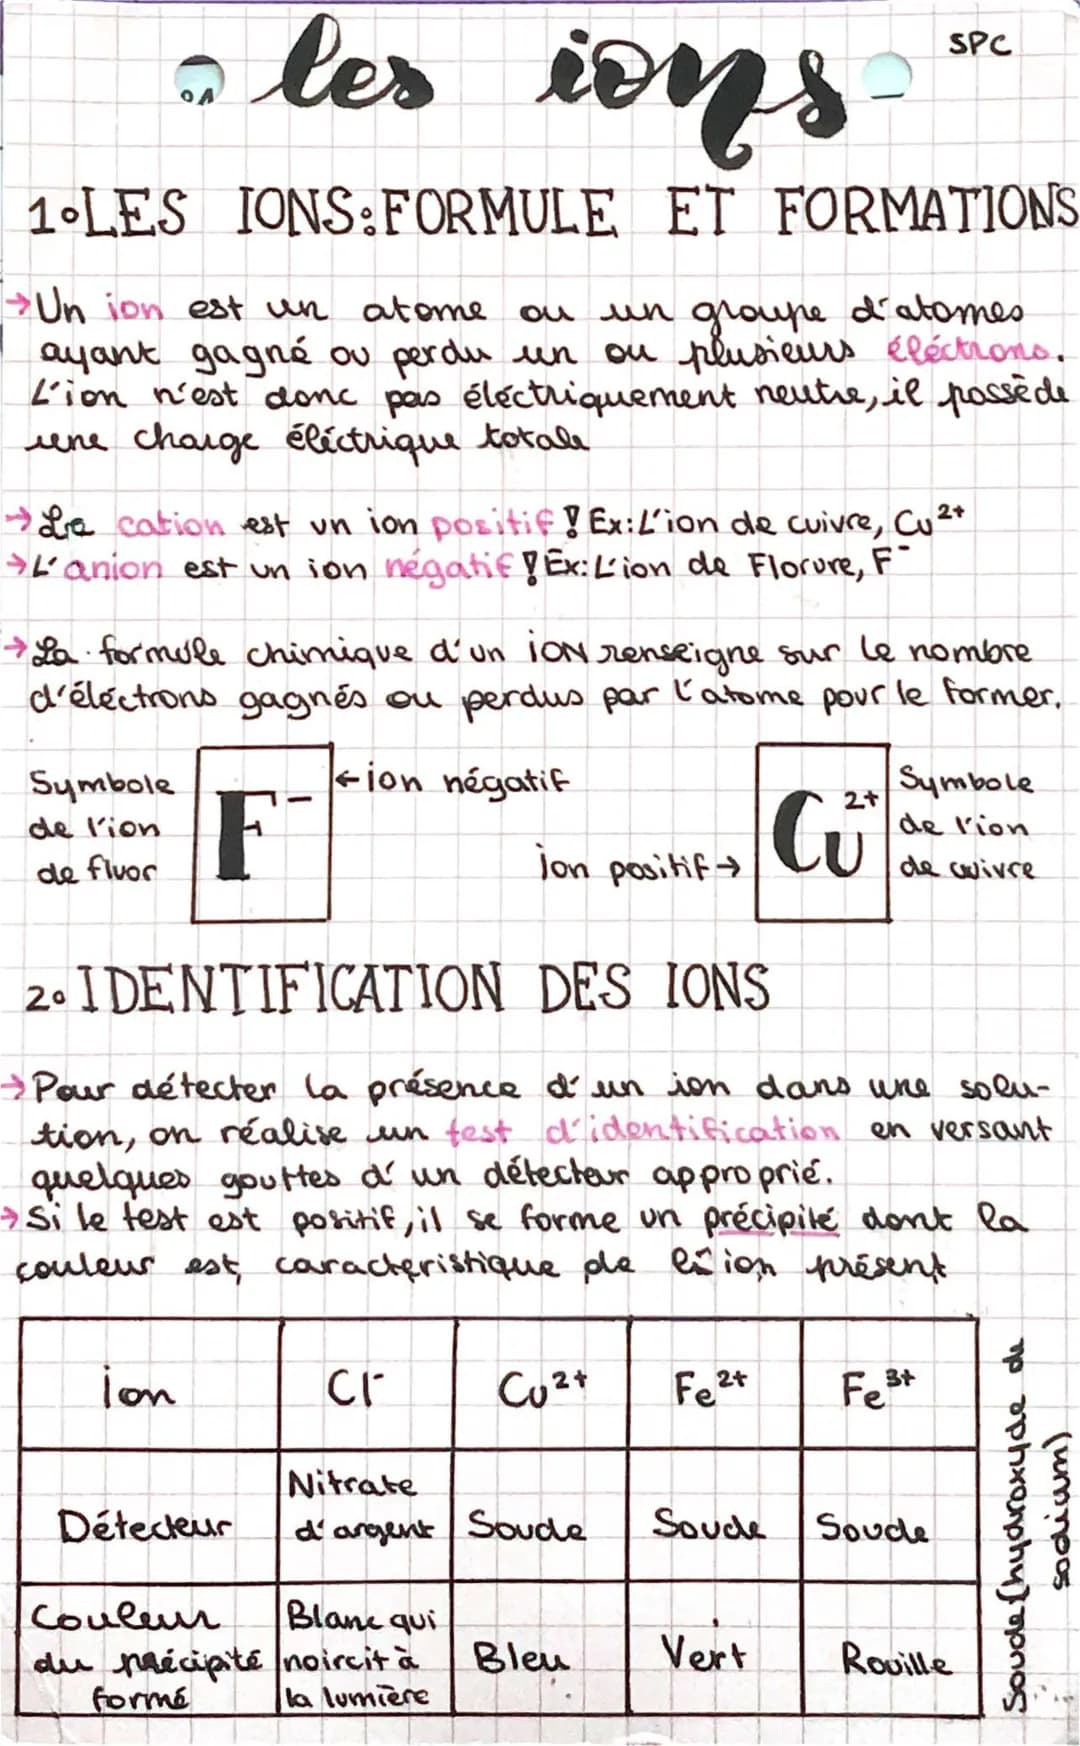 les ions
SPC
1•LES IONS: FORMULE ET FORMATIONS
→Un ion est un atome ou un groupe d'atomes
ayant gagné ou perdu un ou plusieurs éléctrons.
L'ion n'est donc pas éléctriquement neutre, il possède
une charge éléctrique totale
→Le cation est un ion positif! Ex: L'ion de cuivre, Cu²⁺
→L'anion est un ion négatif! Ex: L'ion de Florure, F⁻
→La formule chimique d'un ion renseigne sur le nombre
d'éléctrons gagnés ou perdus par l'atome pour le former.
Symbole
de l'ion
de fluor
F⁻
←ion négatif
ion positif→
Cu²⁺
Symbole
de l'ion
de cuivre
2• IDENTIFICATION DES IONS
→Pour détecter la présence d'un ion dans une solu-
tion, on réalise un test d'identification en versant
quelques gouttes d'un détecteur approprié.
→Si le test est positif, il se forme un précipité dont la
couleur est caractéristique de l'ion présent
ion Cl⁻ Cu²⁺ Fe²⁺ Fe³⁺
Détecteur Nitrate d'argent Soude Soude Soude
Couleur du précipité formé Blanc qui noircit à la lumière Bleu Vert Rouille
Soude (hydroxyde de
sodium)